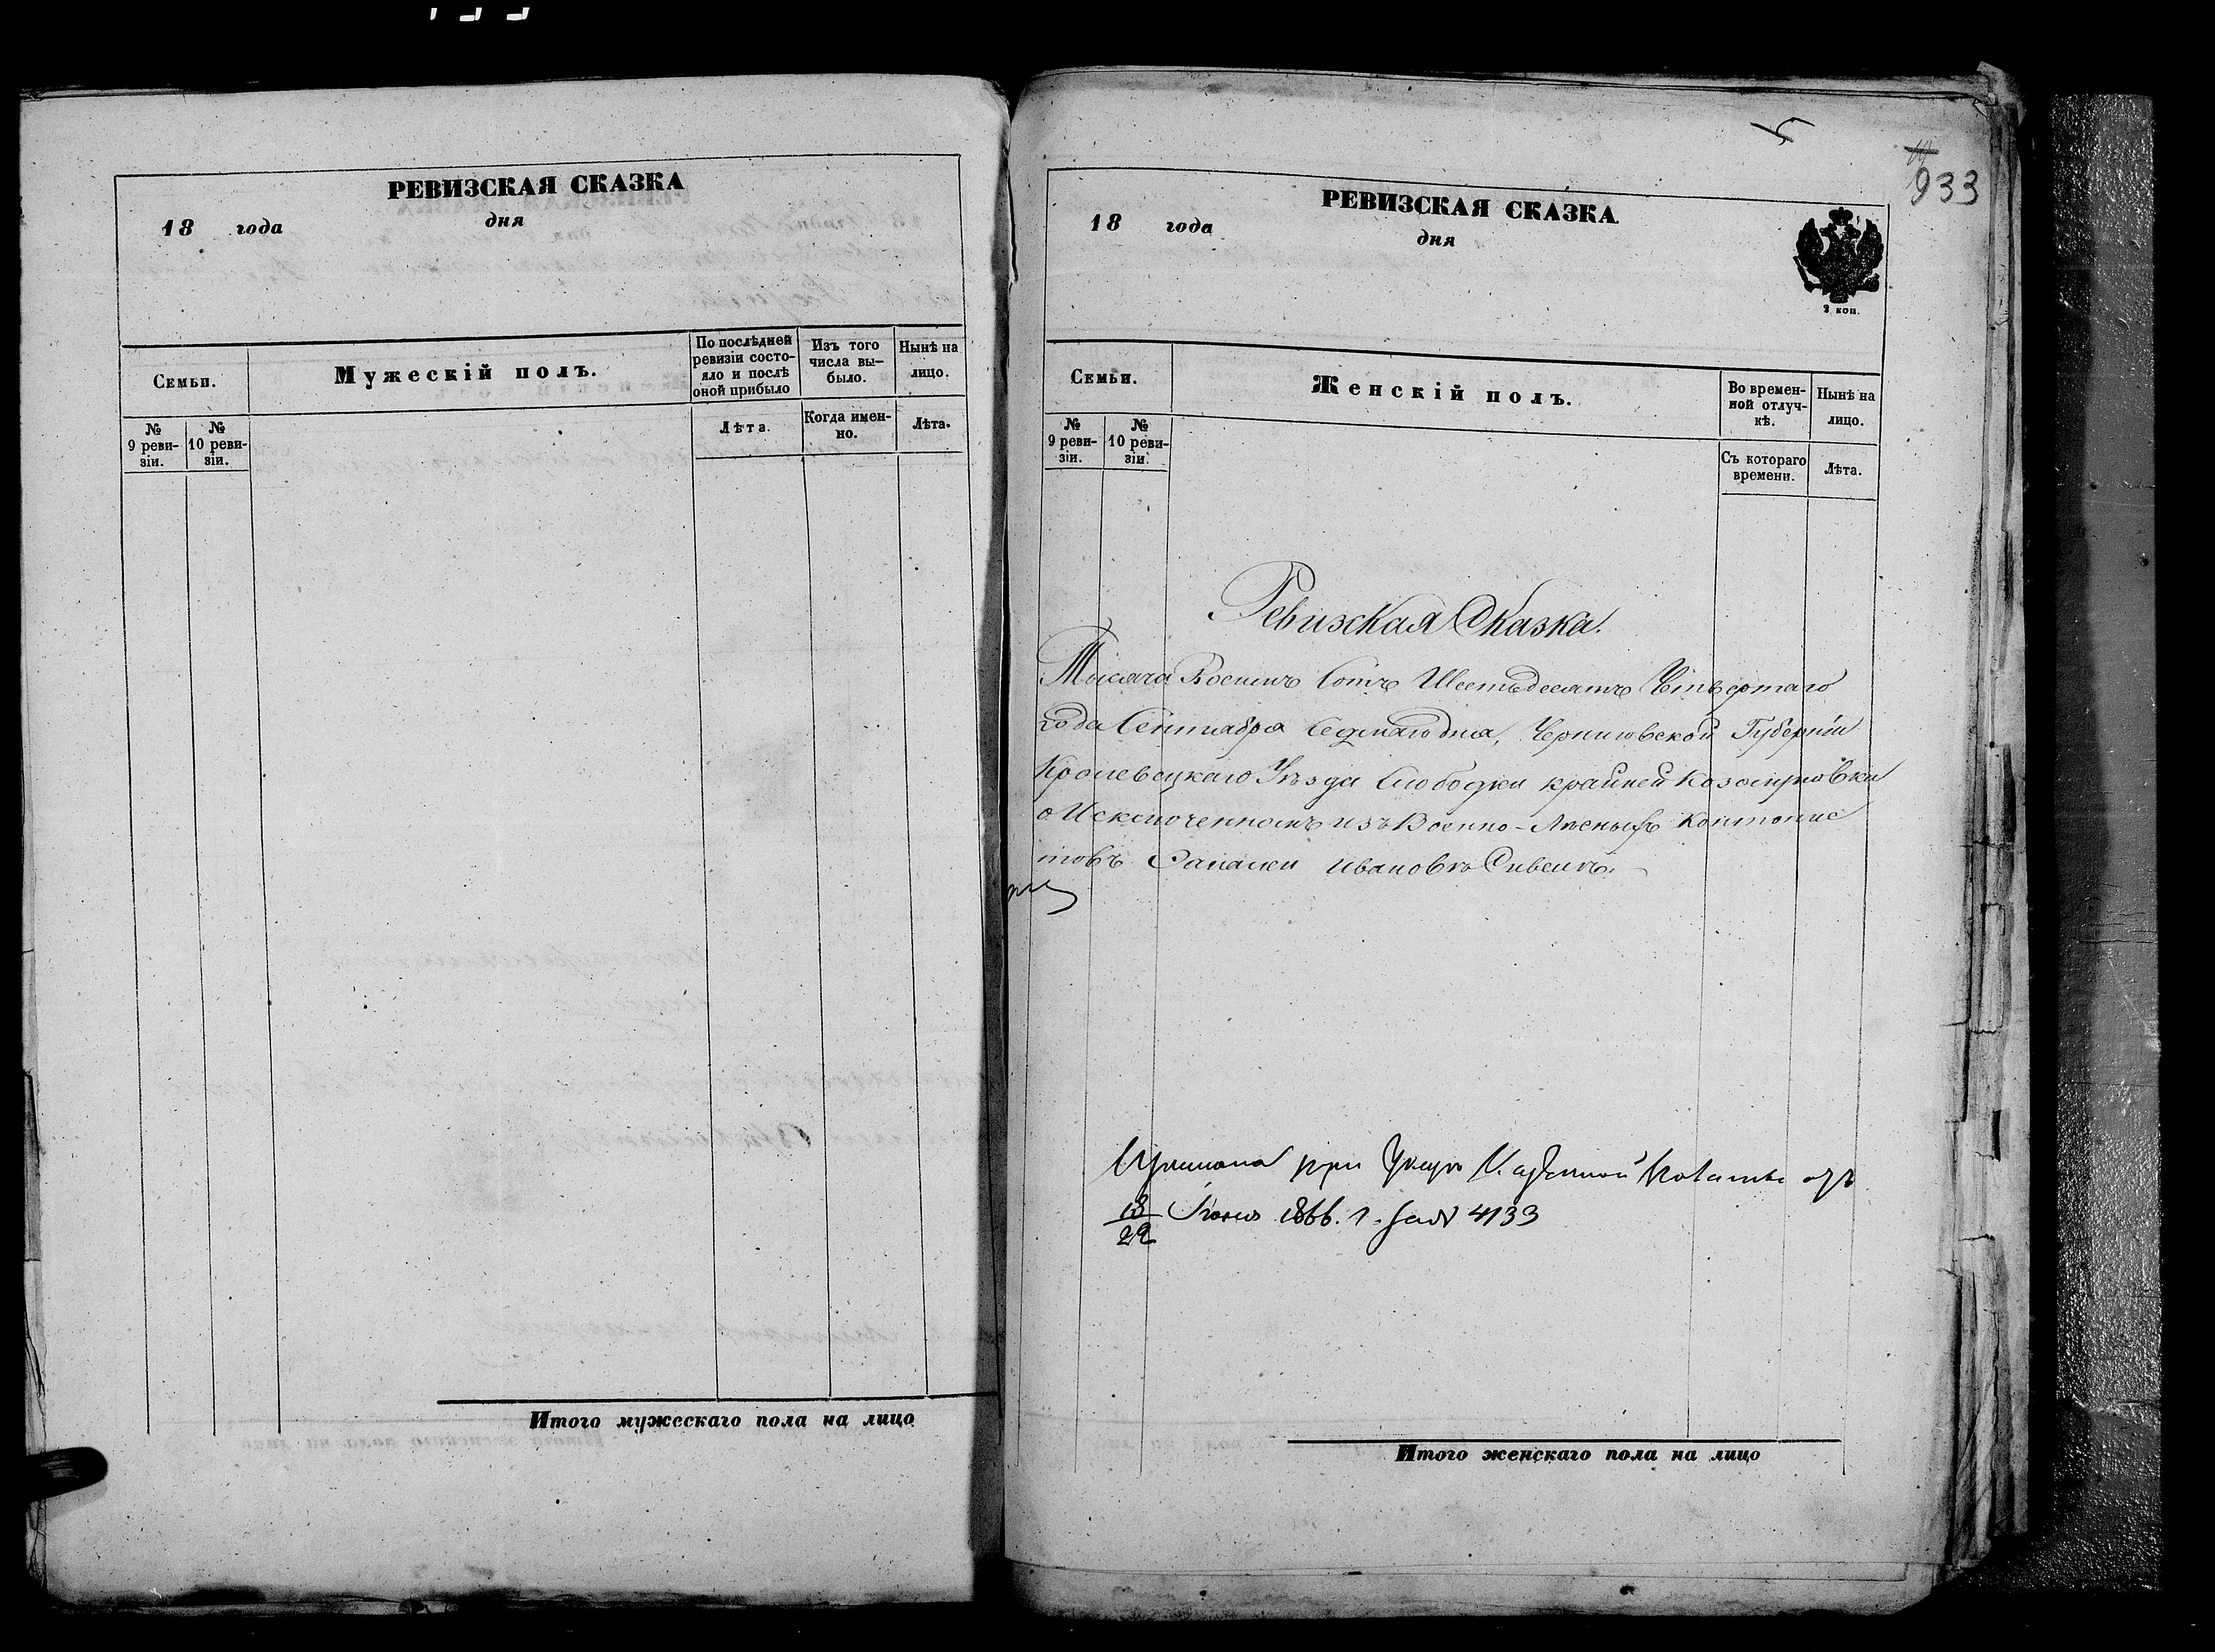 РЕВИЗСКАЯ СКАЗКА
18 года дня
Семьи.
Мужескій полъ.
По послѣдней ревизіи состояло и послѣ оной прибыло
Изъ того числа выбыло.
Нынѣ на лицо.
№ 9 ревизіи.
№ 10 ревизіи.
Лѣта.
Когда именно.
Лѣта.
Итого мужескаго пола на лицо
5
933
РЕВИЗСКАЯ СКАЗКА
18 года дня
2 коп.
Семьи.
Женскій полъ.
Во временной отлучкѣ.
Нынѣ на лицо.
№ 9 ревизіи.
№ 10 ревизіи.
Съ котораго времени.
Лѣта.
Ревизкая Сказка.
Тысяча Восемъ Сотъ Шестьдесятъ Четвертаго
года Сентября Седмаго дня, Черниговской Губерніи
Кролевецкаго Уѣзда Слободки крайней
о Исключенномъ изъ Военно- Кантонис
товъ Ивановѣ
при Указѣ Казенной Палаты отъ
18/22 1866. г. за № 4133
Итого женскаго пола на лицо